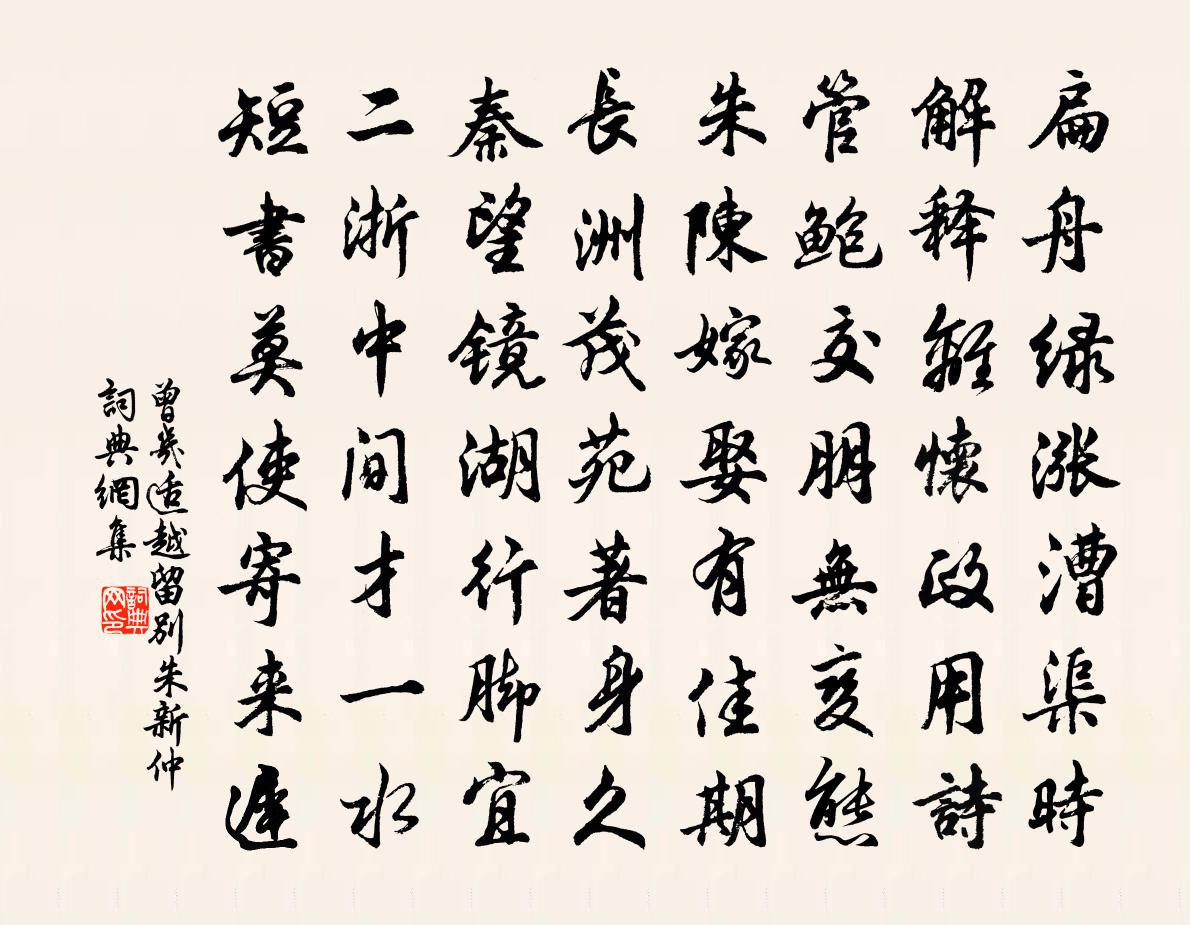 扁舟绿涨漕渠時
解释離懷政用詩
管鮑交朋無变態
朱陳嫁娶有佳期
長洲茂苑著身久
秦望镜湖行脚宜
二浙中间才一水
短書莫使寄来遲
曾幾适越留别朱新仲
詞典網集
詞典网印